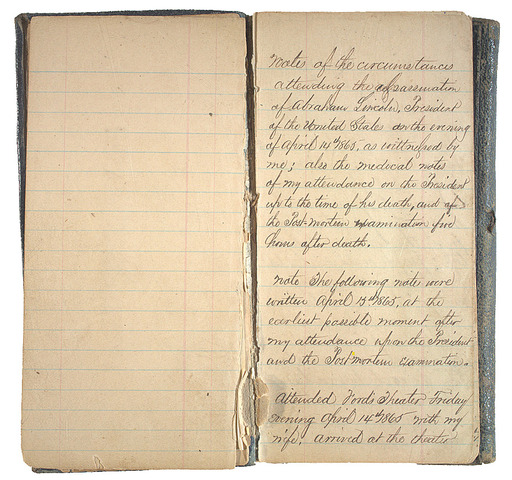 Notes of the circumstances
attending the assassination
of Abraham Lincoln, President
of the United States on the evening
of April 14th 1865, as wittnessed by
me; also the medical notes
of my attendance on the President
up to the time of his death, and of
the Post-mortem examination five
hours after death.
Note The following notes were
written April 15th 1865, at the
earliest possible moment after
my attendance upon the President
and the Post mortem examination.
Attended Fords Theater Friday
evening April 14th 1865 with my
wife, arrived at the theater